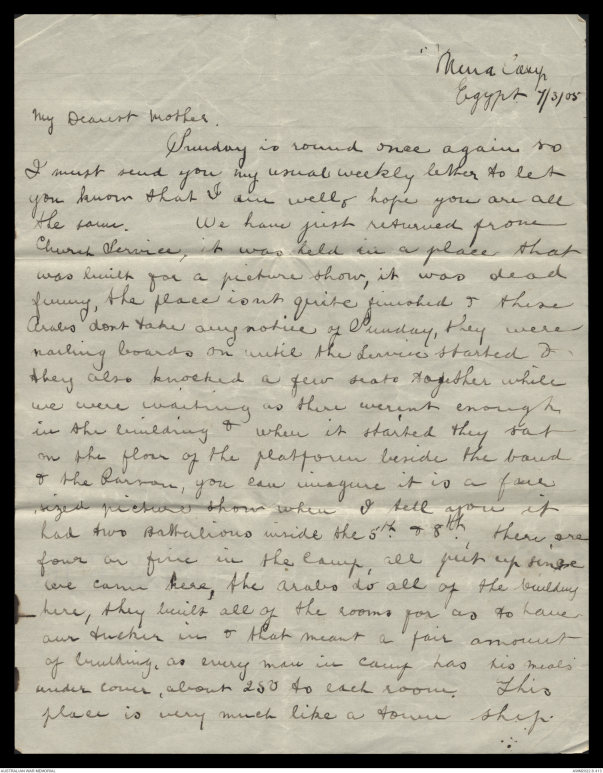 Mena Camp
Egypt 7/3/05
My Dearest Mother.
Sunday is round once again so
I must send you my usual weekly letter to let
you know that I am well & hope you are all
the same. We have just returned from
Church Service, it was held in a place that
was built for a picture show, it was dead
funny, the place isnt quite finished & these
Arabs dont take any notice of Sunday, they were
nailing boards on until the Service started &
they also knocked a few seats together while
we were waiting as there werent enough
in the building & when it started they sat
on the floor of the platform beside the band
& the Parson, you can imagine it is a fair
sized picture show when I tell you it
had two Battalions inside the 5th & 8th, there are
four or five in the Camp, all put up since
we came here, the Arabs do all of the building
here, they built all of the rooms for us to have
our tucker in & that meant a fair amount
of building, as every man in camp has his meals
under cover, about 250 to each room. This
place is very much like a town ship.
AUSTRALIAN WAR MEMORIAL